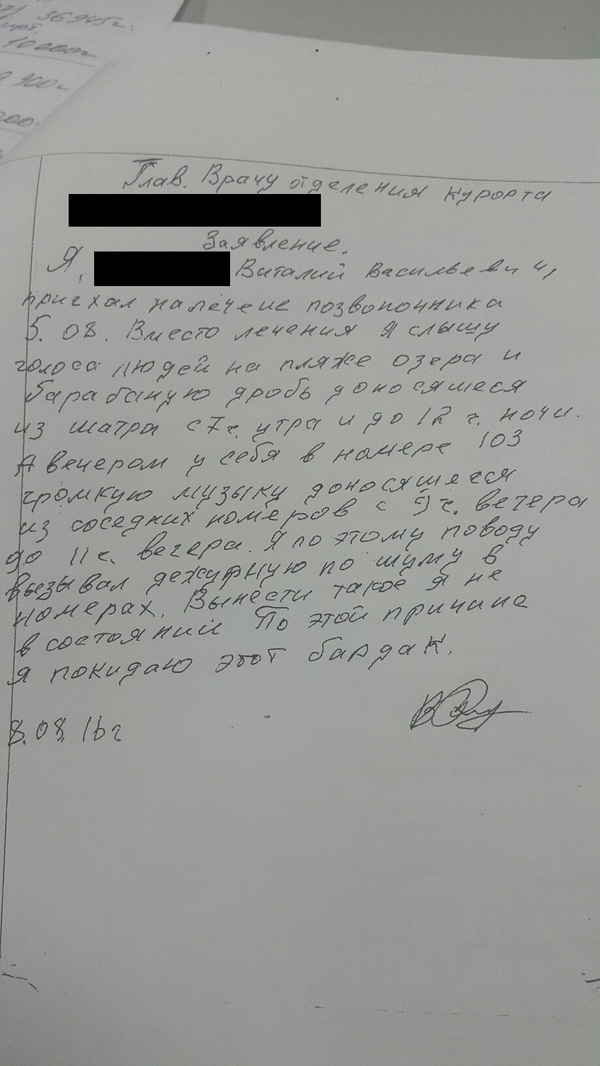 36945г.
10000г
900г
000
Глав. Врачу отделения курорта
Заявление.
Я, Виталий Васильевич,
приехал на лечение позвоночника
5.08. Вместо лечения я слышу
голоса людей на пляже озера и
барабаную дробь доносящиеся
из шатра с 7 ч. утра и до 12 г. ночи.
А вечером у себя в номере 103
громкую музыку доносящиеся
из соседних номеров с 9 ч. вечера
до 11 ч. вечера. Я по этому поводу
вызывал дежурную по шуму в
номерах. Вынести такое я не
в состоянии По этой причине
я покидаю этот бардак.
8.08.16г